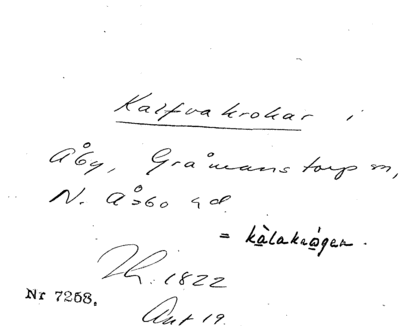 Kalfvakrokar i
Åby, Gråmanstorp sn,
N. Åsbo hd.
= kàlakrågen.
Th. 1822
Nr 7258.
Ant 19.